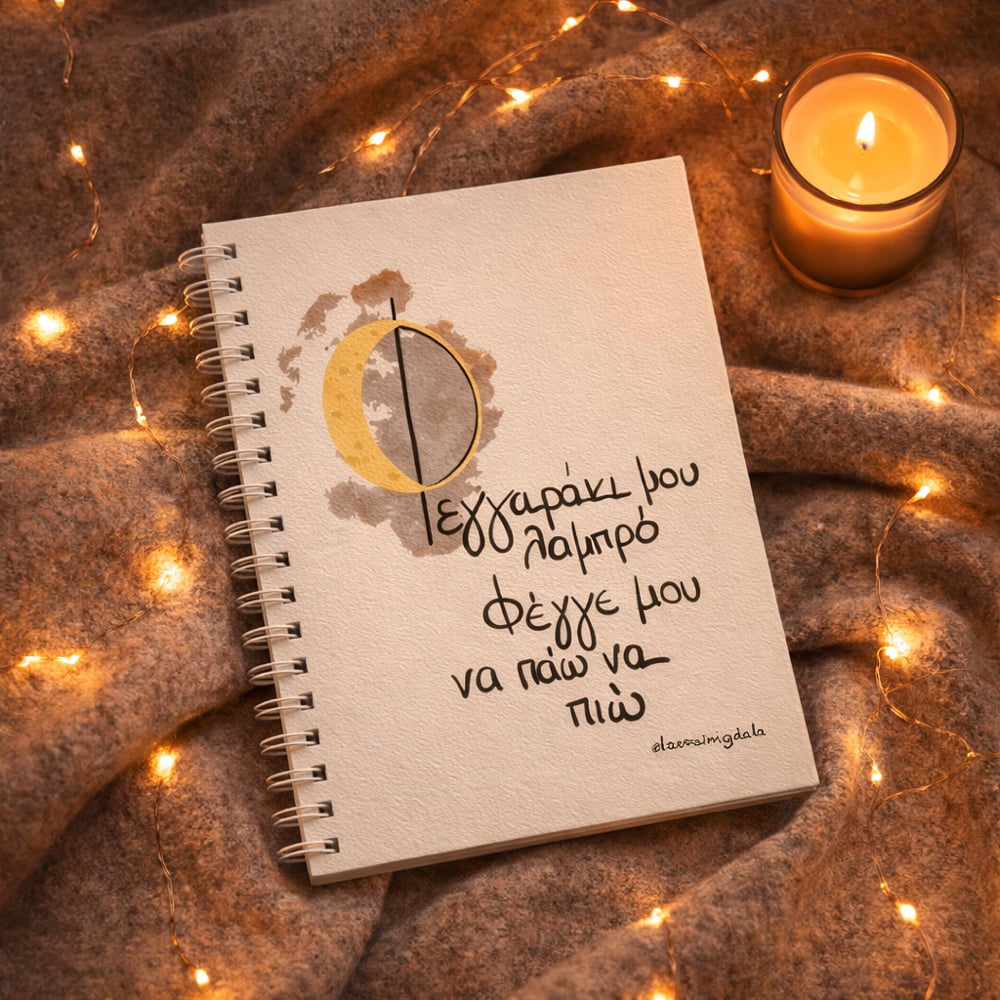 Φεγγαράκι μου
λαμπρό
Φέγγε μου
να πάω να
πιώ